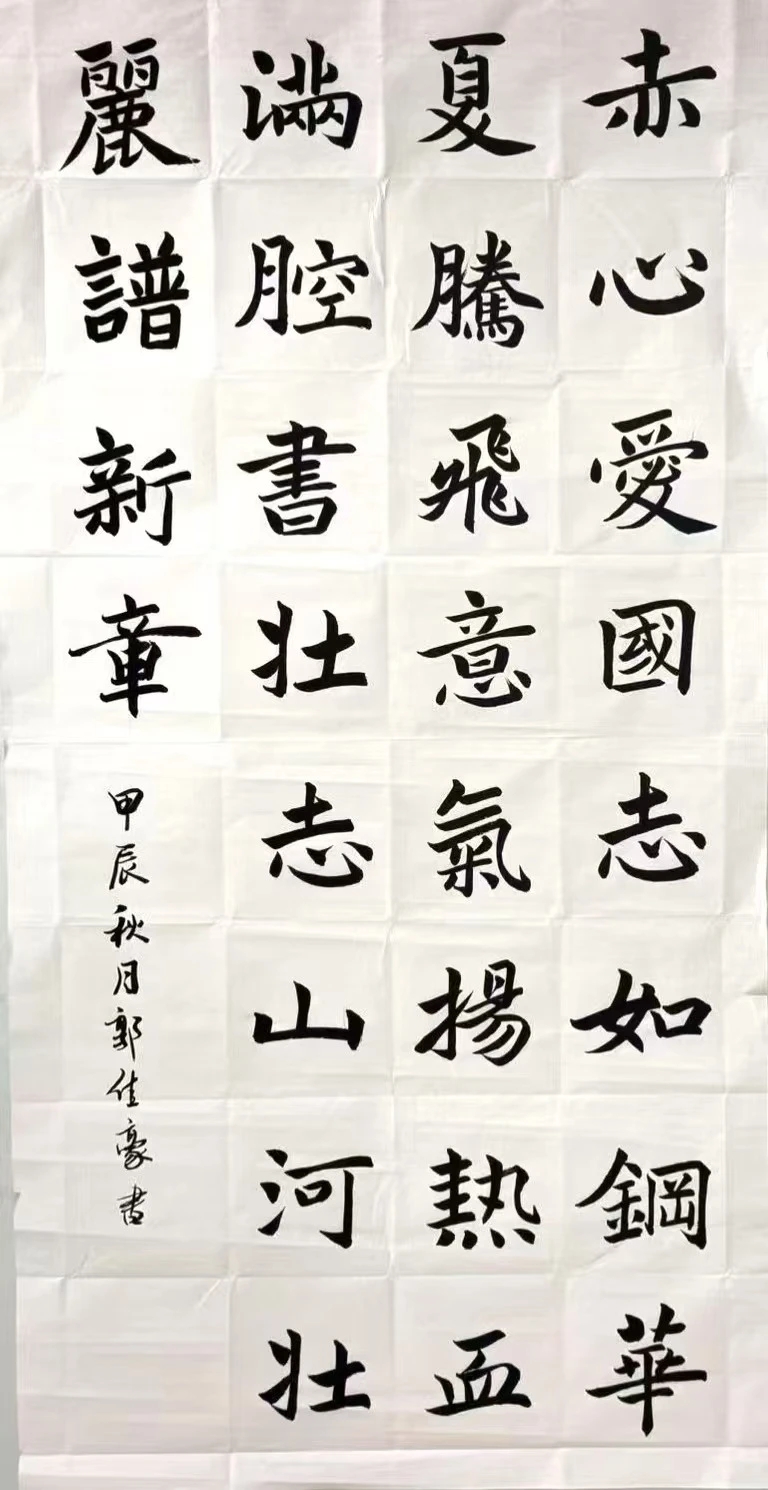 赤心愛國志如鋼華
夏騰飛意氣揚熱血
滿腔書壯志山河壯
麗譜新章
甲辰秋月郭佳豪書